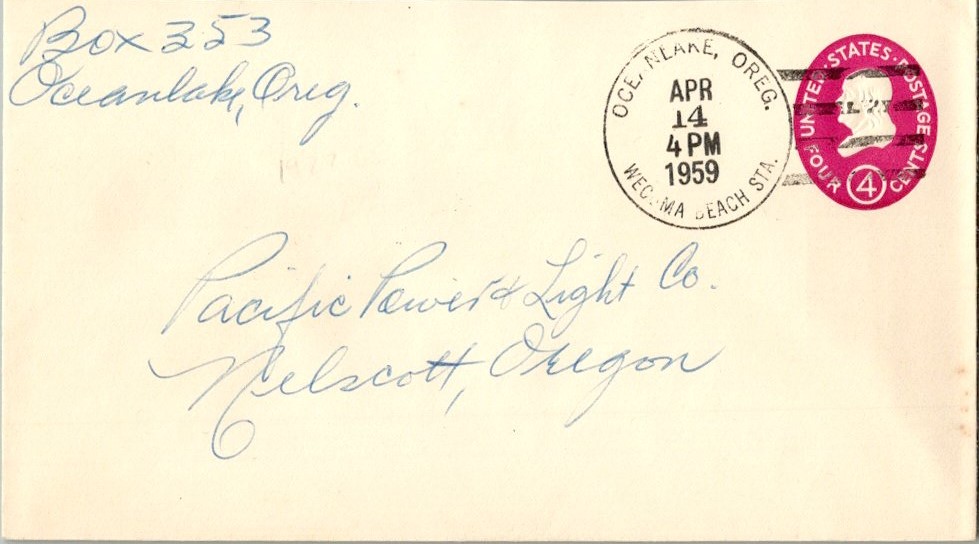 Box 353
Oceanlake, Oreg.
OCEANLAKE, OREG.
APR
14
4 PM
1959
WECOMA BEACH STA.
UNITED STATES POSTAGE
FOUR 4 CENTS
Pacific Power & Light Co.
Nelscott, Oregon